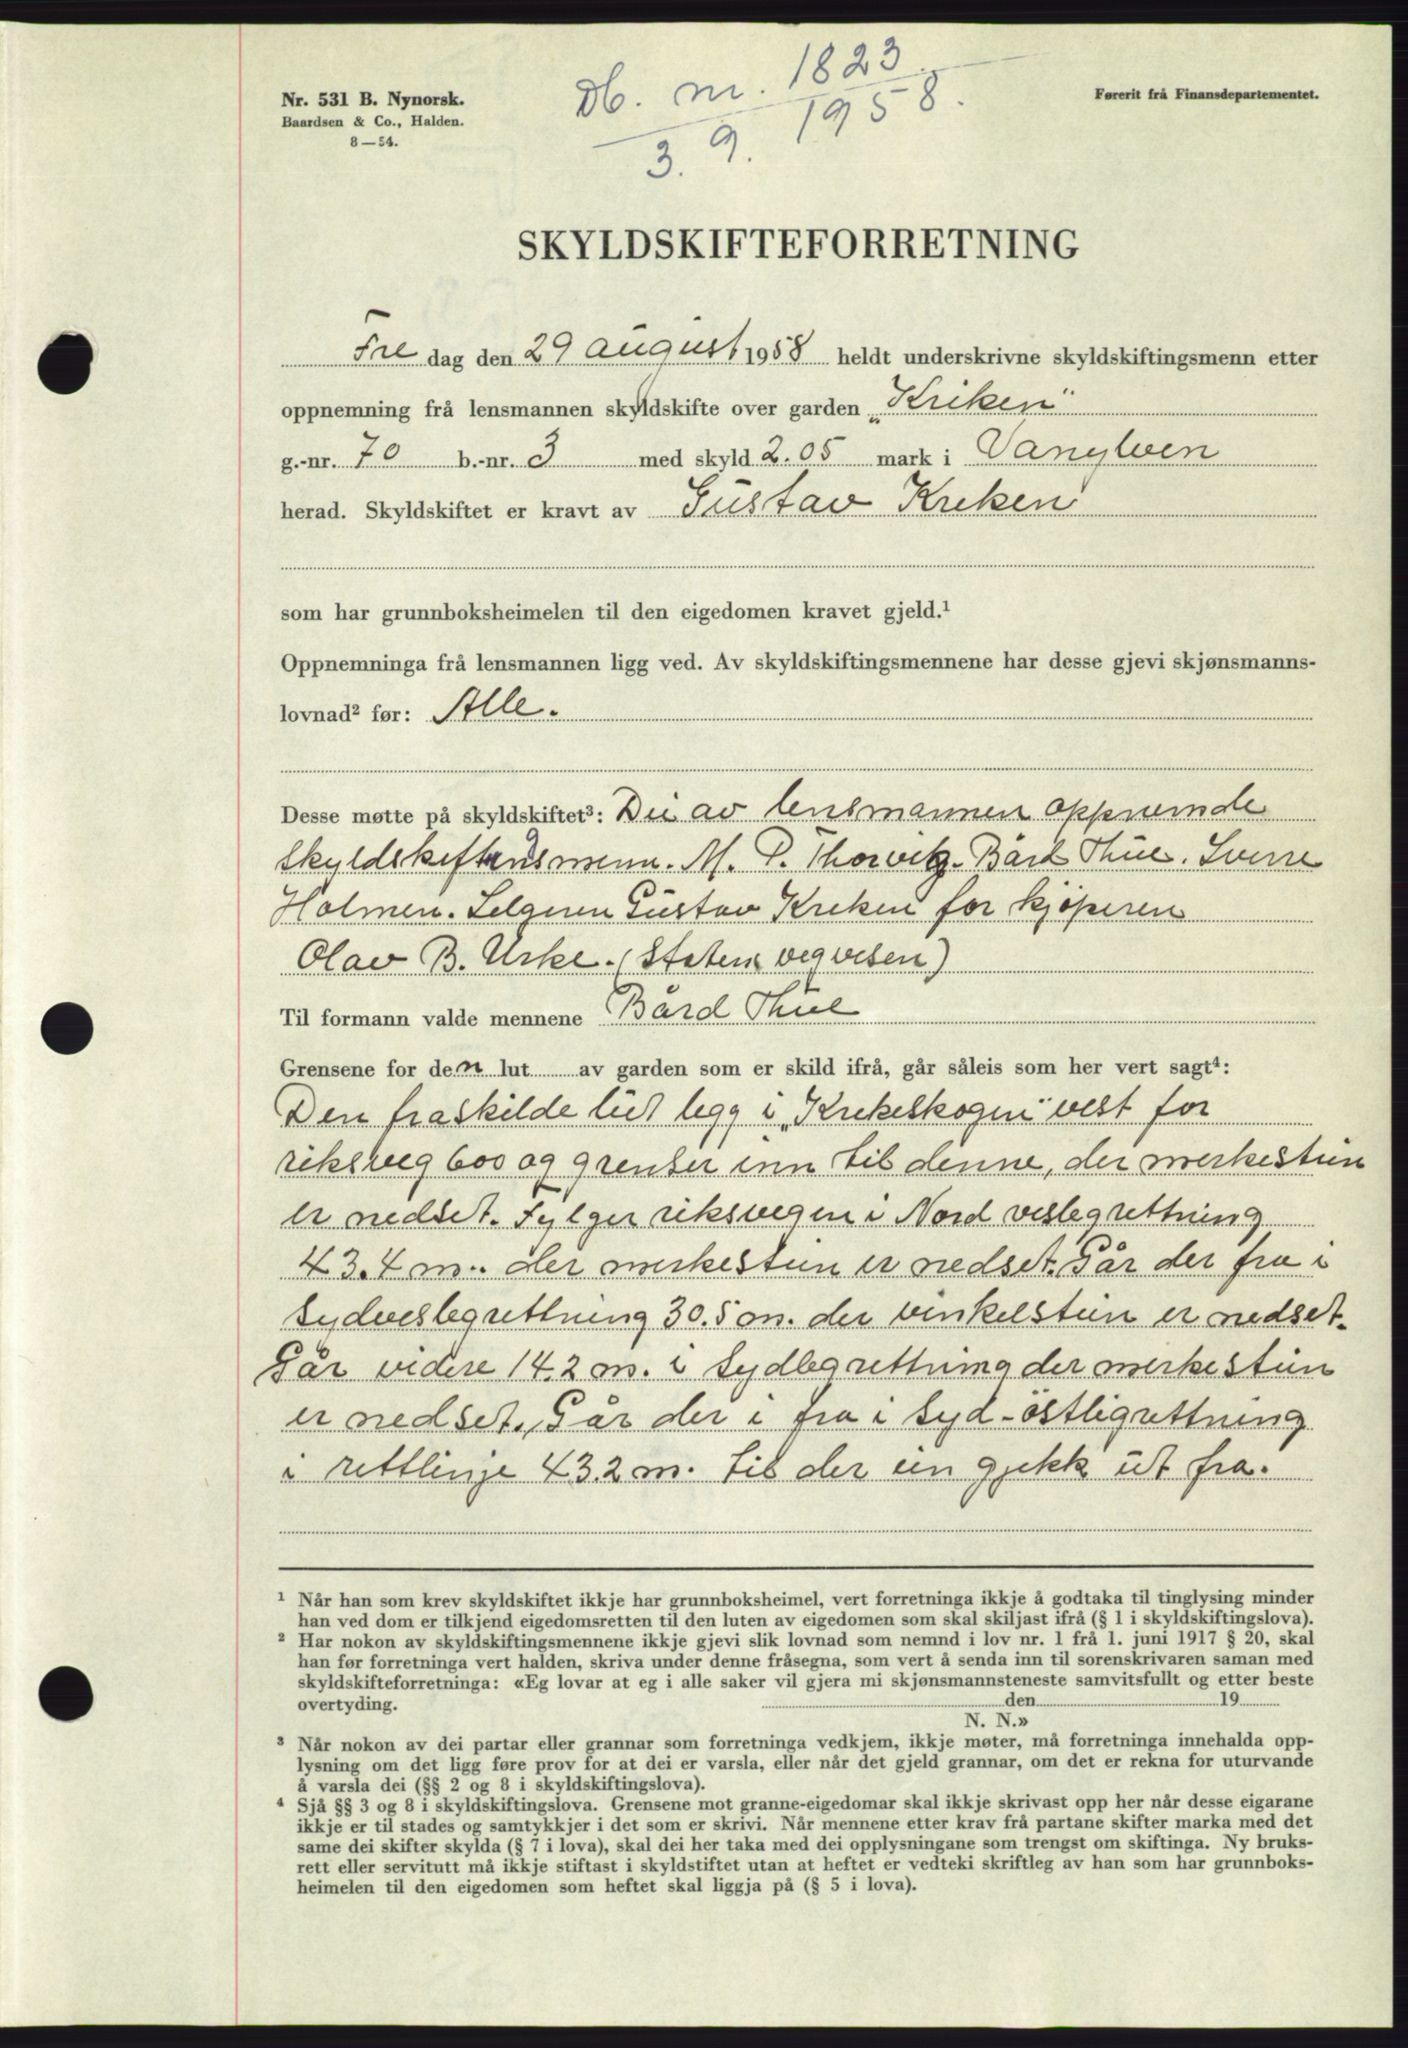 Nr. 531 B. Nynorsk.
Baardsen & Co., Halden.
8—54.
Db. nr. 1823
3. 9. 1958.
Førerit frå Finansdepartementet.
SKYLDSKIFTEFORRETNING
Fre dag den 29 august 1958 heldt underskrivne skyldskiftingsmenn etter
oppnemning frå lensmannen skyldskifte over garden „Kriken"
g.-nr. 70 b.-nr. 3 med skyld 2.05 mark i Vanylven
herad. Skyldskiftet er kravt av Gustav Kreken
som har grunnboksheimelen til den eigedomen kravet gjeld.¹
Oppnemninga frå lensmannen ligg ved. Av skyldskiftingsmennene har desse gjevi skjønsmanns-
lovnad² før: Alle.
Desse møtte på skyldskiftet³: Dei av lensmannen oppnemde
skyldskiftingsmenn. M. P. Thorvik. Bård Thue. Sverre
Holmen. Selgeren Gustav Kreken for kjøperen
Olav B. Urke. (Statens vegvesen)
Til formann valde mennene Bård Thue
Grensene for den lut av garden som er skild ifrå, går såleis som her vert sagt⁴:
Den fraskilde lut legg i „Krekeskogen" vest for
riksveg 600 og grenser inn til denne, der merkestein
er nedset. Fylger riksvegen i Nord vestlegrettning
43.4 m.. der merkestein er nedset. Går der fra i
Sydvestlegrettning 30.5 m. der vinkelstein er nedset.
Går videre 14.2 m. i Sydlegrettning der merkestein
er nedset. Går der i fra i Syd-östligrettning
i rettlinje 43.2 m. til der ein gjekk ut fra.
¹ Når han som krev skyldskiftet ikkje har grunnboksheimel, vert forretninga ikkje å godtaka til tinglysing minder
han ved dom er tilkjend eigedomsretten til den luten av eigedomen som skal skiljast ifrå (§ 1 i skyldskiftingslova).
² Har nokon av skyldskiftingsmennene ikkje gjevi slik lovnad som nemnd i lov nr. 1 frå 1. juni 1917 § 20, skal
han før forretninga vert halden, skriva under denne fråsegna, som vert å senda inn til sorenskrivaren saman med
skyldskifteforretninga: «Eg lovar at eg i alle saker vil gjera mi skjønsmannsteneste samvitsfullt og etter beste
overtyding. den 19
N. N.»
³ Når nokon av dei partar eller grannar som forretninga vedkjem, ikkje møter, må forretninga innehalda opp-
lysning om det ligg føre prov for at dei er varsla, eller når det gjeld grannar, om det er rekna for uturvande
å varsla dei (§§ 2 og 8 i skyldskiftingslova).
⁴ Sjå §§ 3 og 8 i skyldskiftingslova. Grensene mot granne-eigedomar skal ikkje skrivast opp her når desse eigarane
ikkje er til stades og samtykkjer i det som er skrivi. Når mennene etter krav frå partane skifter marka med det
same dei skifter skylda (§ 7 i lova), skal dei her taka med dei opplysningane som trengst om skiftinga. Ny bruks-
rett eller servitutt må ikkje stiftast i skyldstiftet utan at heftet er vedteki skriftleg av han som har grunnboks-
heimelen til den eigedomen som heftet skal liggja på (§ 5 i lova).